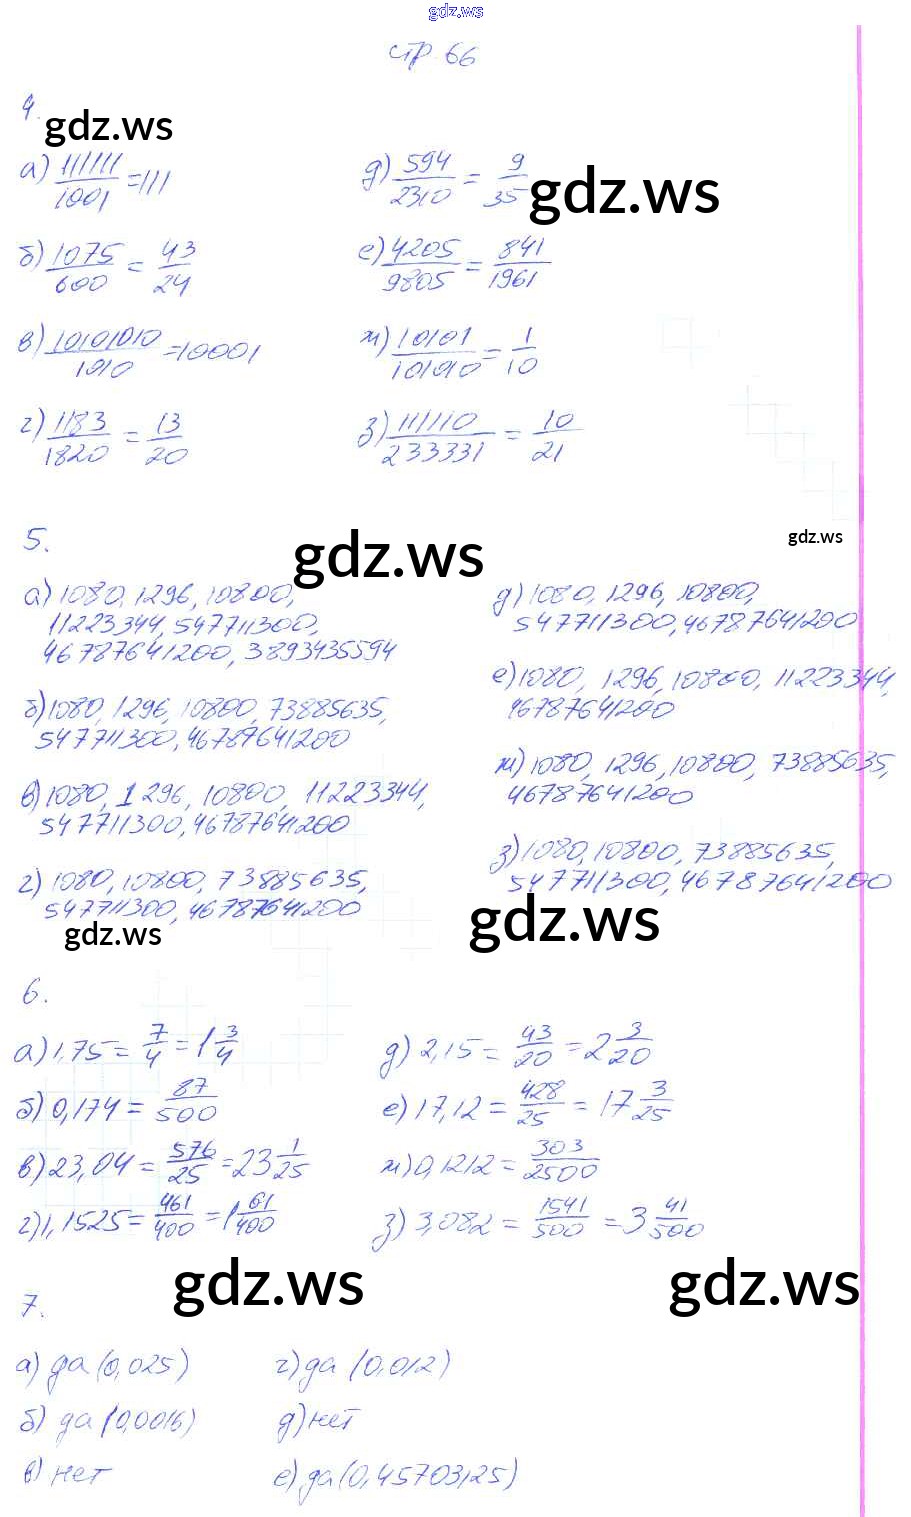 gdz.ws
стр 66
4.
gdz.ws
а) 111111/1001 = 111
д) 594/2310 = 9/35
gdz.ws
б) 1075/600 = 43/24
е) 4205/9805 = 841/1961
в) 10101010/1010 = 10001
ж) 10101/101010 = 1/10
г) 1183/1820 = 13/20
з) 111110/233331 = 10/21
5.
gdz.ws
gdz.ws
а) 1080, 1296, 10800,
11223344, 547711300,
46787641200, 3893435594
б) 1080, 1296, 10800, 73885635,
547711300, 46787641200
в) 1080, 1296, 10800, 11223344,
547711300, 46787641200
г) 1080, 10800, 73885635,
547711300, 46787641200
gdz.ws
д) 1080, 1296, 10800,
547711300, 46787641200
е) 1080, 1296, 10800, 11223344,
46787641200
ж) 1080, 1296, 10800, 73885635,
46787641200
з) 1080, 10800, 73885635,
547711300, 46787641200
gdz.ws
6.
а) 1,75 = 7/4 = 1 3/4
д) 2,15 = 43/20 = 2 3/20
б) 0,174 = 87/500
е) 17,12 = 428/25 = 17 3/25
в) 23,04 = 576/25 = 23 1/25
ж) 0,1212 = 303/2500
г) 1,1525 = 461/400 = 1 61/400
з) 3,082 = 1541/500 = 3 41/500
gdz.ws
gdz.ws
7.
а) да (0,025)
г) да (0,012)
б) да (0,0016)
д) нет
в) нет
е) да (0,45703125)